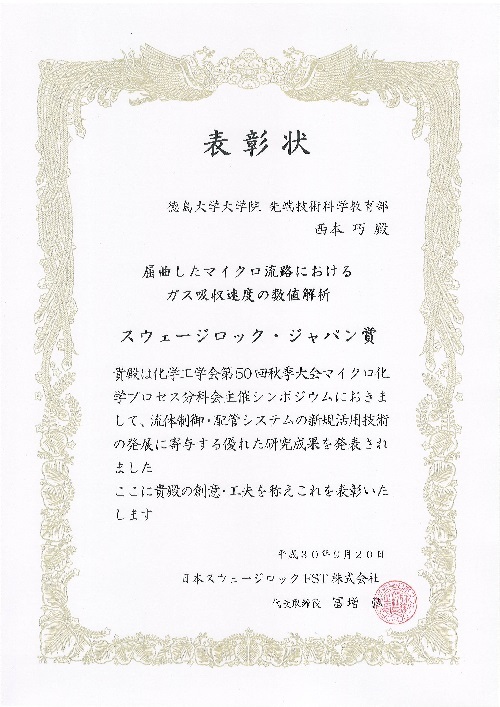 表彰状
徳島大学大学院 先端技術科学教育部
西本 巧 殿
屈曲したマイクロ流路における
ガス吸収速度の数値解析
スウェージロック・ジャパン賞
貴殿は化学工学会第50回秋季大会マイクロ化
学プロセス分科会主催シンポジウムにおきま
して、流体制御・配管システムの新規活用技術
の発展に寄与する優れた研究成果を発表され
ました
ここに貴殿の創意・工夫を称えこれを表彰いた
します
平成30年9月20日
日本スウェージロックFST株式会社
代表取締役 冨増